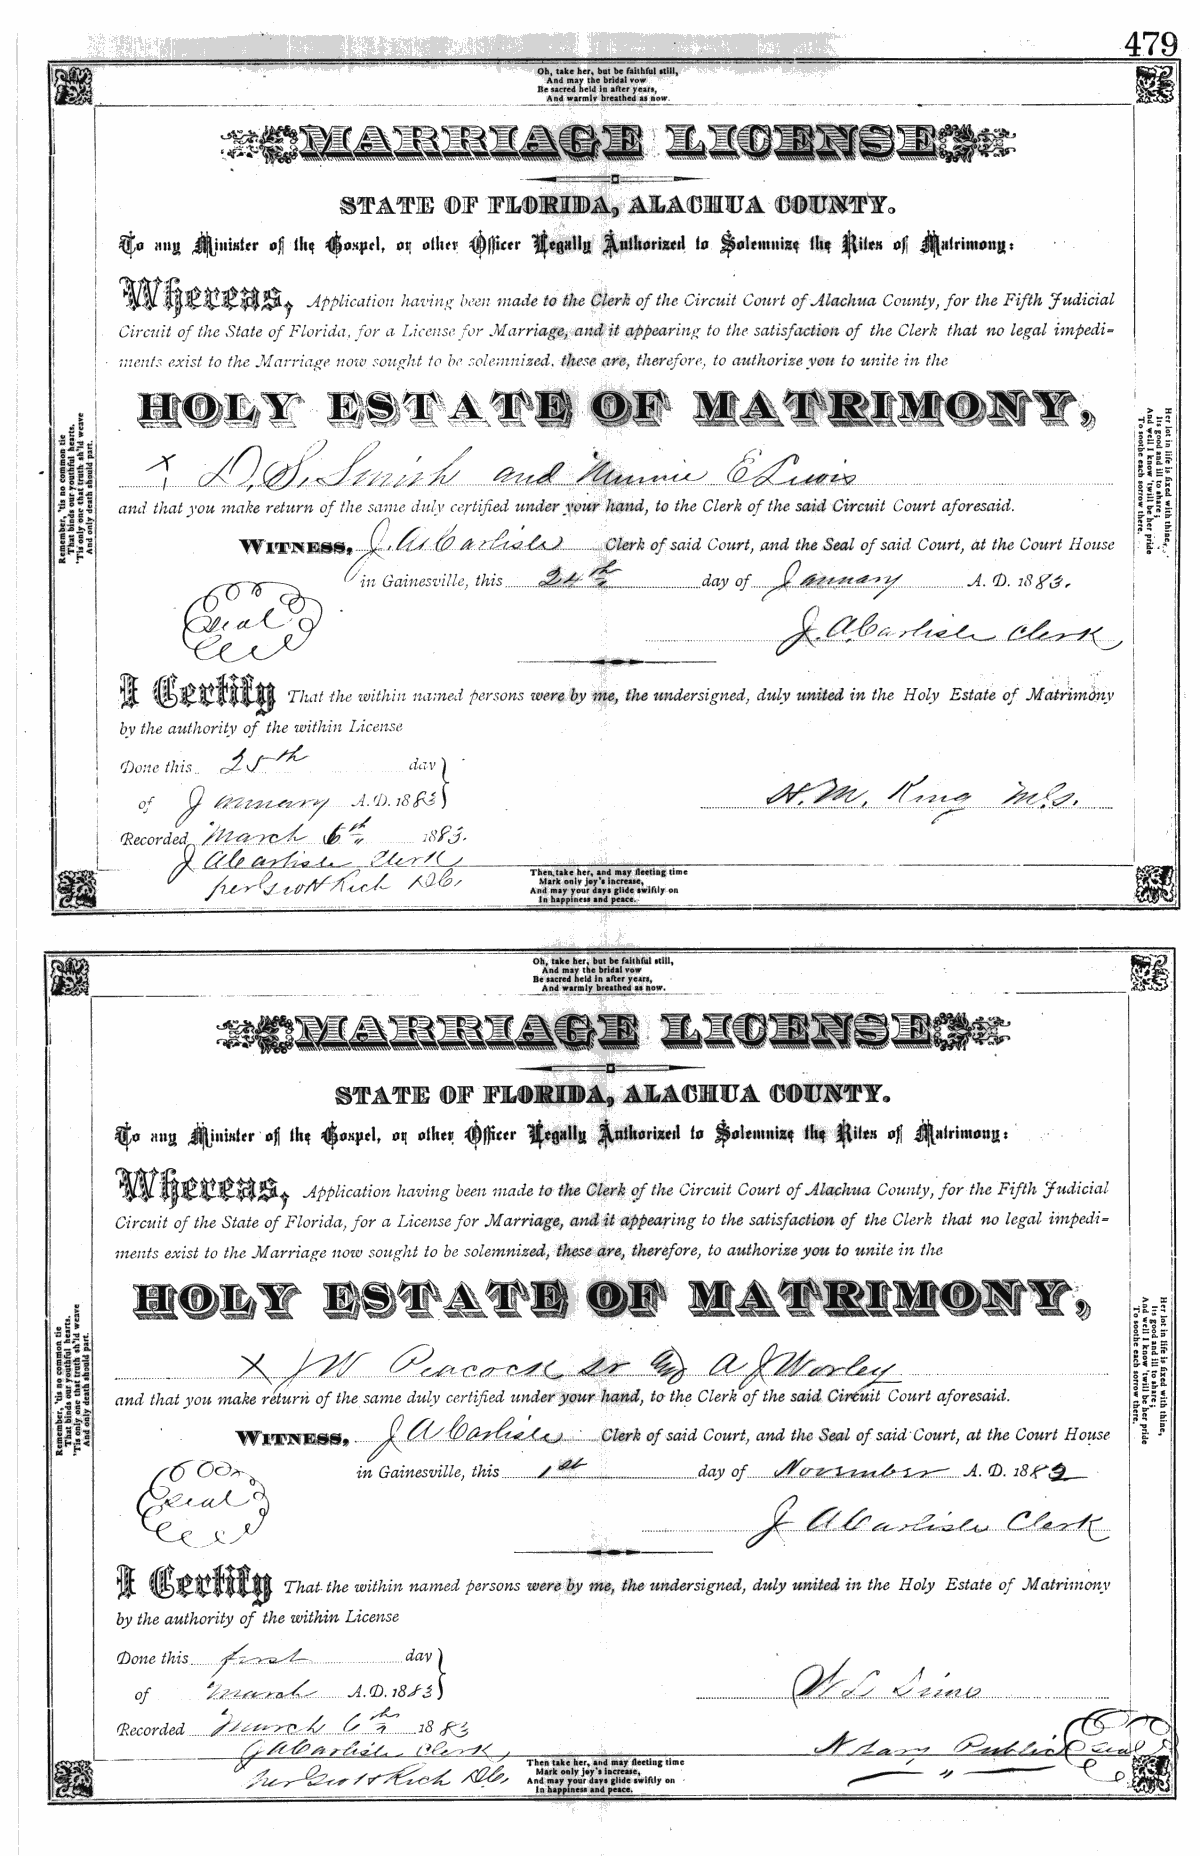 479
Oh, take her, but be faithful still,
And may the bridal vow
Be sacred held in after years,
And warmly breathed as now.
MARRIAGE LICENSE
STATE OF FLORIDA, ALACHUA COUNTY.
To any Minister of the Gospel, or other Officer Legally Authorized to Solemnize the Rites of Matrimony:
Whereas, Application having been made to the Clerk of the Circuit Court of Alachua County, for the Fifth Judicial
Circuit of the State of Florida, for a License for Marriage, and it appearing to the satisfaction of the Clerk that no legal impedi-
ments exist to the Marriage now sought to be solemnized, these are, therefore, to authorize you to unite in the
HOLY ESTATE OF MATRIMONY,
X D. S. Smith and Minnie E Lewis
and that you make return of the same duly certified under your hand, to the Clerk of the said Circuit Court aforesaid.
WITNESS, J. A. Carlisle Clerk of said Court, and the Seal of said Court, at the Court House
in Gainesville, this 24th day of January A. D. 1883.
Seal
J. A. Carlisle Clerk
I Certify That the within named persons were by me, the undersigned, duly united in the Holy Estate of Matrimony
by the authority of the within License
Done this 25th day
of January A. D. 1883
H. M. King M.G.
Recorded March 6th 1883.
J A Carlisle Clerk
per Geo H Rich D.C.
Then take her, and may fleeting time
Mark only joy's increase,
And may your days glide swiftly on
In happiness and peace.
Remember, 'tis no common tie
That binds our youthful hearts,
'Tis only one that truth sh'ld weave
And only death should part.
Her lot in life is fixed with thine,
Its good and ill to share;
And well I know 'twill be her pride
To soothe each sorrow there.
Oh, take her, but be faithful still,
And may the bridal vow
Be sacred held in after years,
And warmly breathed as now.
MARRIAGE LICENSE
STATE OF FLORIDA, ALACHUA COUNTY.
To any Minister of the Gospel, or other Officer Legally Authorized to Solemnize the Rites of Matrimony:
Whereas, Application having been made to the Clerk of the Circuit Court of Alachua County, for the Fifth Judicial
Circuit of the State of Florida, for a License for Marriage, and it appearing to the satisfaction of the Clerk that no legal impedi-
ments exist to the Marriage now sought to be solemnized, these are, therefore, to authorize you to unite in the
HOLY ESTATE OF MATRIMONY,
X J W Peacock sr and A J Worley
and that you make return of the same duly certified under your hand, to the Clerk of the said Circuit Court aforesaid.
WITNESS, J A Carlisle Clerk of said Court, and the Seal of said Court, at the Court House
in Gainesville, this 1st day of November A. D. 1882
Seal
J A Carlisle Clerk
I Certify That the within named persons were by me, the undersigned, duly united in the Holy Estate of Matrimony
by the authority of the within License
Done this first day
of March A. D. 1883
W L
Recorded March 6th 1883
J A Carlisle Clerk,
per Geo H Rich D.C.
Notary Public Seal
Then take her, and may fleeting time
Mark only joy's increase,
And may your days glide swiftly on
In happiness and peace.
Remember, 'tis no common tie
That binds our youthful hearts,
'Tis only one that truth sh'ld weave
And only death should part.
Her lot in life is fixed with thine,
Its good and ill to share;
And well I know 'twill be her pride
To soothe each sorrow there.